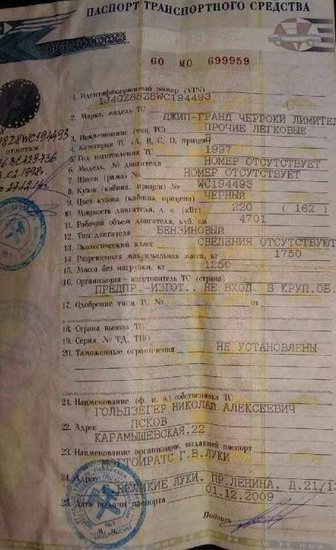 ПАСПОРТ ТРАНСПОРТНОГО СРЕДСТВА
60 МО 699959
1. Идентификационный номер (VIN)
1J4GZ88Z8WC194493
2. Марка, модель ТС ДЖИП-ГРАНД ЧЕРРОКИ ЛИМИТЕД
3. Наименование (тип ТС) ПРОЧИЕ ЛЕГКОВЫЕ
4. Категория ТС (A, B, C, D, прицеп)
5. Год изготовления ТС 1997
6. Модель, № двигателя НОМЕР ОТСУТСТВУЕТ
7. Шасси (рама) № НОМЕР ОТСУТСТВУЕТ
8. Кузов (кабина, прицеп) № WC194493
9. Цвет кузова (кабины, прицепа) ЧЕРНЫЙ
10. Мощность двигателя, л. с. (кВт) 220 (162)
11. Рабочий объем двигателя, куб. см 4701
12. Тип двигателя БЕНЗИНОВЫЙ
13. Экологический класс СВЕДЕНИЯ ОТСУТСТВУЮТ
14. Разрешенная максимальная масса, кг 1750
15. Масса без нагрузки, кг 1250
16. Организация - изготовитель ТС (страна)
ПРЕДПР-ИЗГОТ. НЕ ВХОД. В КРУП.ОБ.
17. Одобрение типа ТС №
18. Страна вывоза ТС
19. Серия, № ТД, ТПО
20. Таможенные ограничения НЕ УСТАНОВЛЕНЫ
21. Наименование (ф. и. о.) собственника ТС
ГОЛЬДЗЕГЕР НИКОЛАЙ АЛЕКСЕЕВИЧ
22. Адрес ПСКОВ
КАРАМЫШЕВСКАЯ.22
23. Наименование организации, выдавшей паспорт
МОТОИРАТС Г.В.ЛУКИ
24. Адрес
ВЕЛИКИЕ ЛУКИ, ПР.ЛЕНИНА, Д.21/13
25. Дата выдачи паспорта 01.12.2009
Подпись